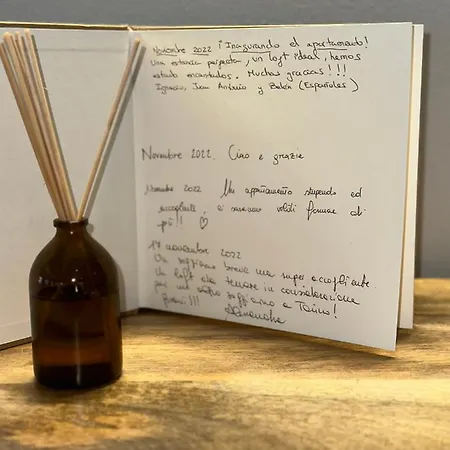 Novembre 2022 ¡Inagurando el apartamento!
Una estancia perfecta, un loft ideal, hemos
estado encantados. Muchas gracias!!!
Ignacio, Juan Antonio y Belén (Españoles)
Novembre 2022. Ciao e grazie
Novembre 2022 Un appartamento stupendo ed
accogliente, ci saremmo voluti fermare di
più!! ♡
17 novembre 2022
Un soggiorno breve ma super accogliente
Un loft da tenere in considerazione
per un altro soggiorno a Torino!
Bravi!!!